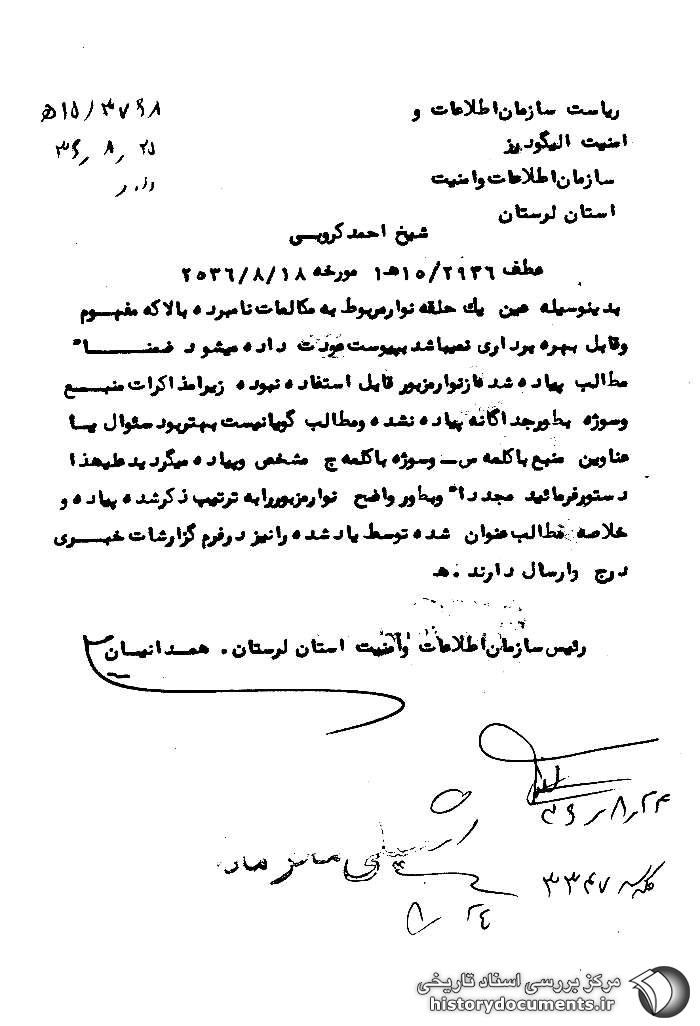 ریاست سازمان اطلاعات و
امنیت الیگودرز
سازمان اطلاعات وامنیت
استان لرستان
۱۵/۳۷۶۸ه
۳۶٫۸٫۲۵
شیخ احمد کروبی
عطف ۱۵/۲۹۳۶ه‍۱ مورخه ۲۵۳۶/۸/۱۸
بدینوسیله عین یك حلقه نوارمربوط به مکالمات نامبرده بالاکه مفهوم
وقابل بهره برداری نمیباشد بپیوست عودت داده میشود ضمنا"
مطالب پیاده شده ازنوارمزبور قابل استفاده نبوده زیرامذاکرات منبع
وسوژه بطورجداگانه پیاده نشده ومطالب گویانیست بهتربود سئوال یا
عناوین منبع باکلمه س_ وسوژه باکلمه ج مشخص وپیاده میگردید علیهذا
دستورفرمائید مجددا" وبطور واضح نوارمزبوررابه ترتیب ذکرشده پیاده و
خلاصه مطالب عنوان شده توسط یادشده رانیز درفرم گزارشات خبری
درج وارسال دارند .ه‍
رئیس سازمان اطلاعات وامنیت استان لرستان . همدانیان
۳۶٫۸٫۲۴
۳۳۴۷
۲۴
۸
مرکز بررسی اسناد تاریخی
historydocuments.ir